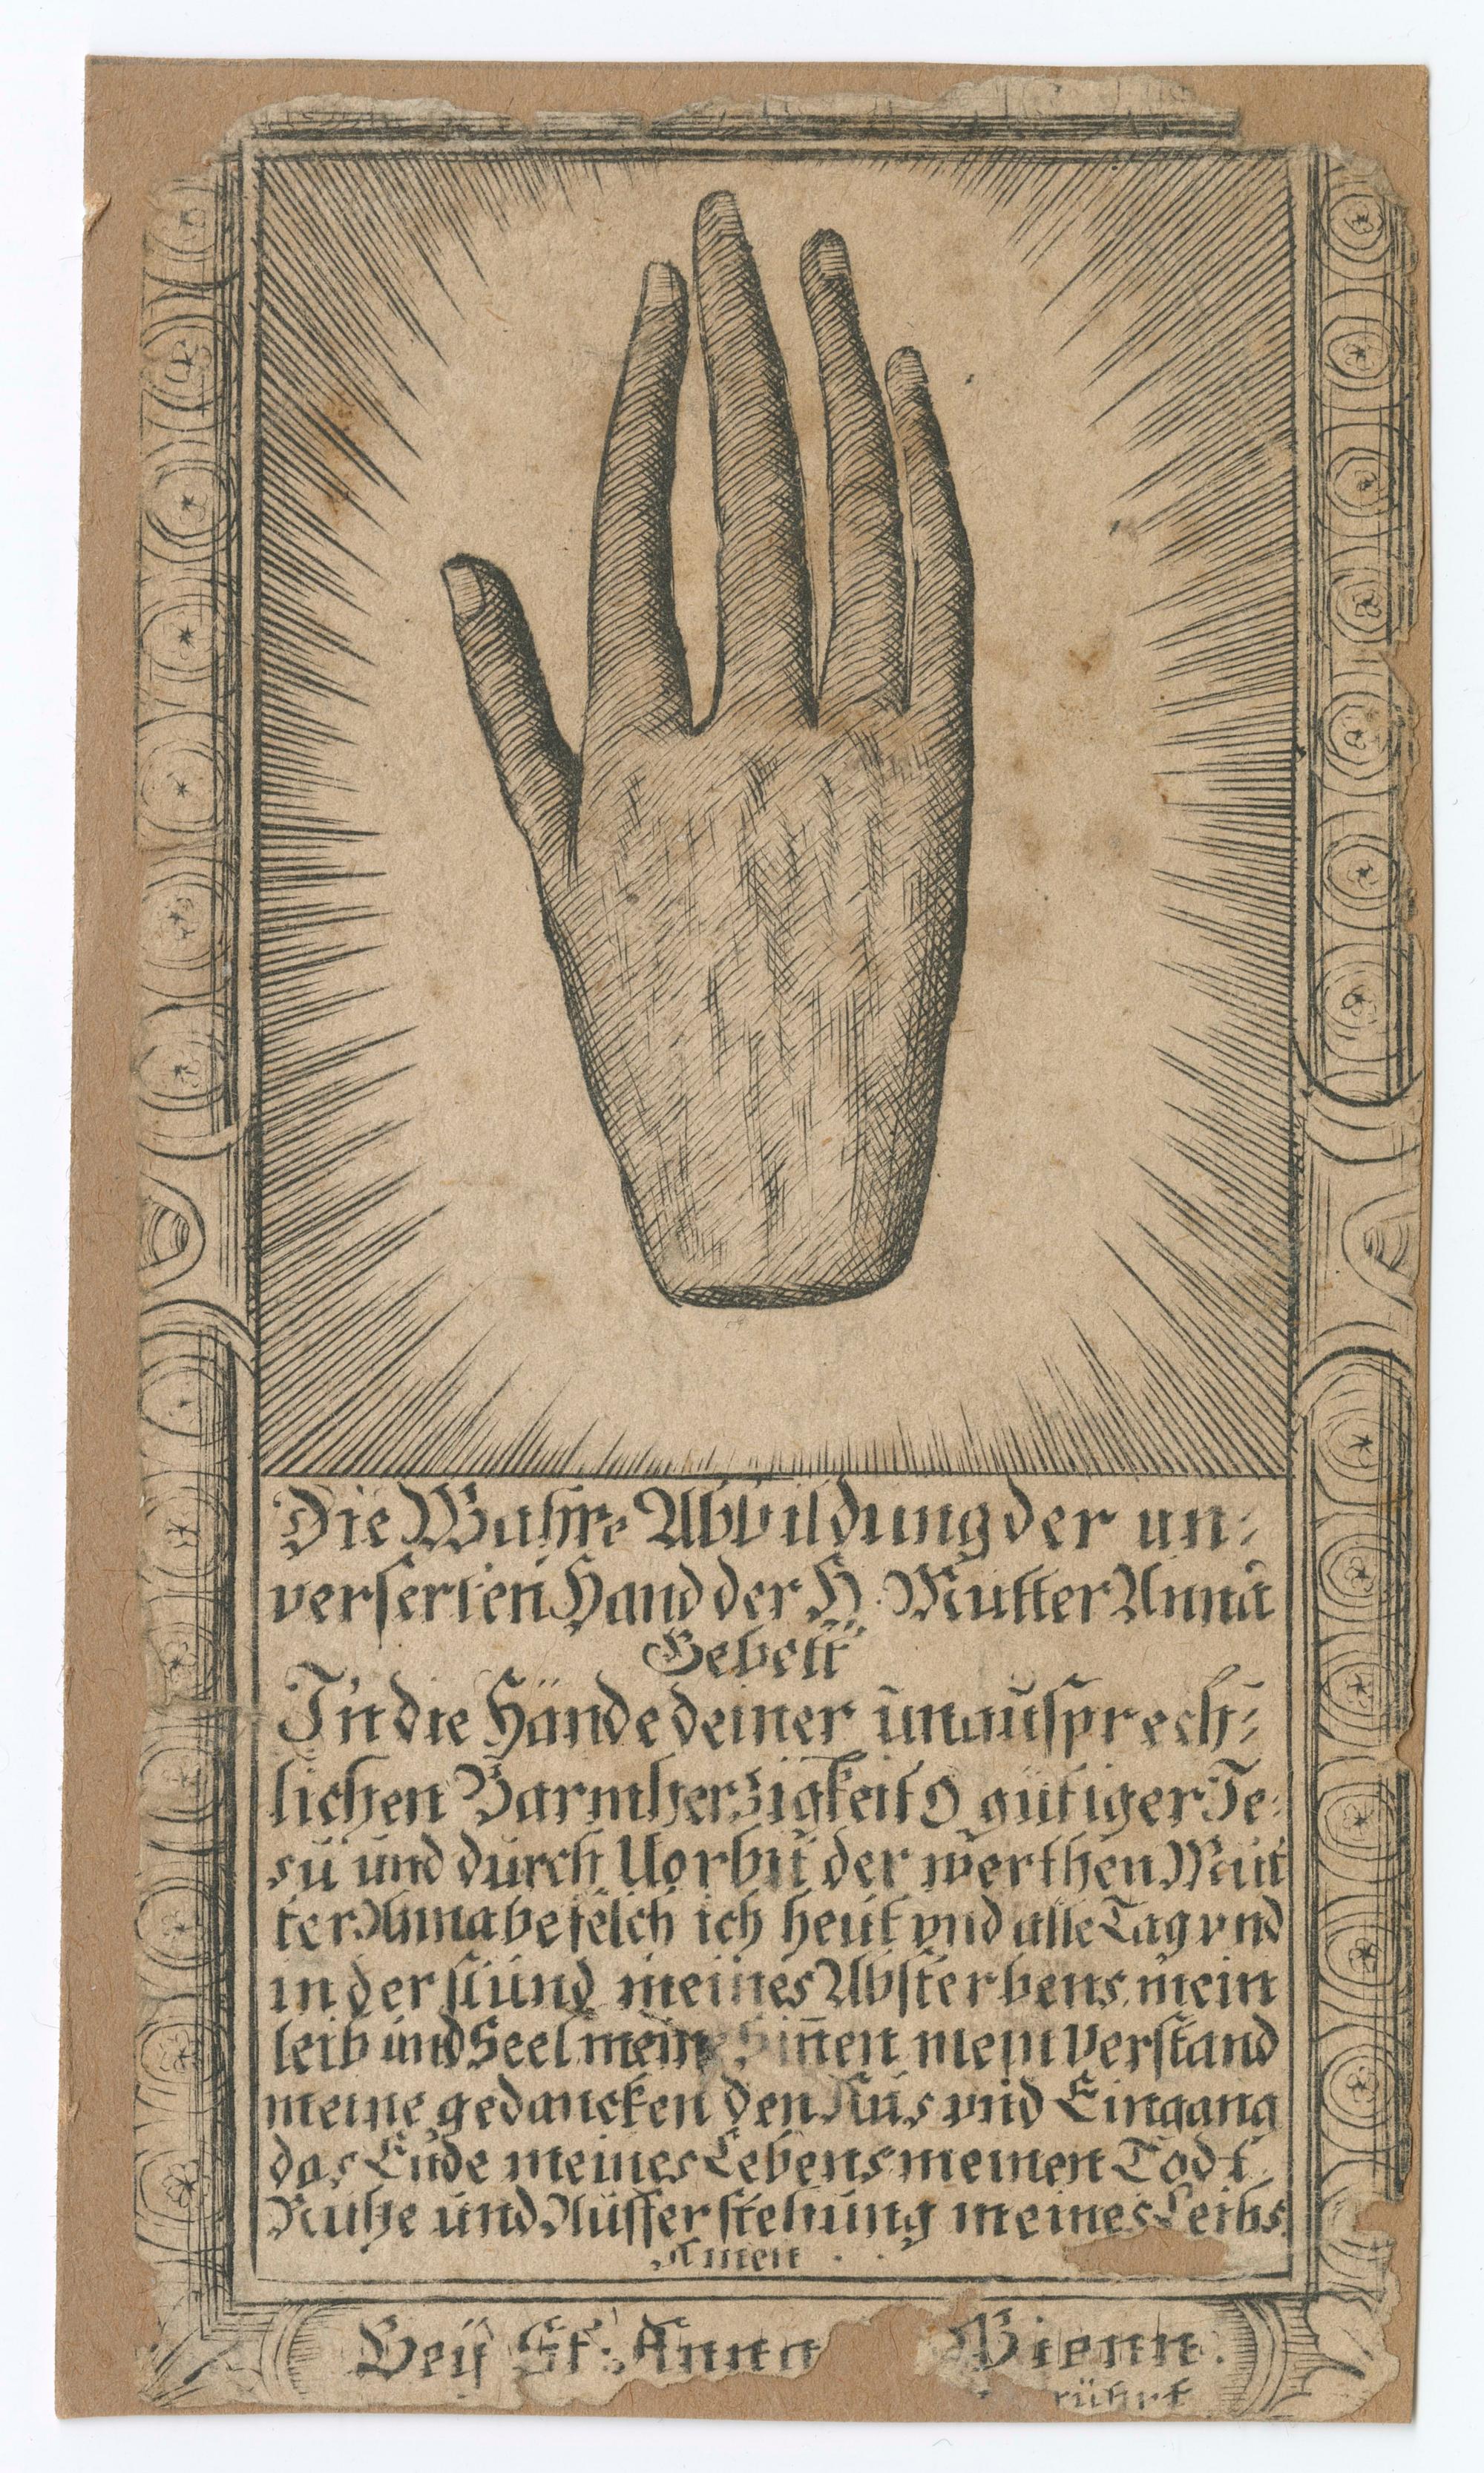 Die Wahre Abbildung der un:
verserten Hand der H. Mutter Anna
Gebett
In die Hände deiner unaussprech:
lichen Barmherzigkeit O gütiger Je:
su und durch Vorbit der werthen Mut
ter Anna befelch ich heut vnd alle Tag vnd
in der stund meines Absterbens mein
leib und Seel meine Sinen mein Verstand
meine gedancken den Aus vnd Eingang
das Ende meines Lebens meinen Todt
Ruhe und Aufferstehung meines Leibs
Amen
Beÿ St: Anna Wienn.
rührt